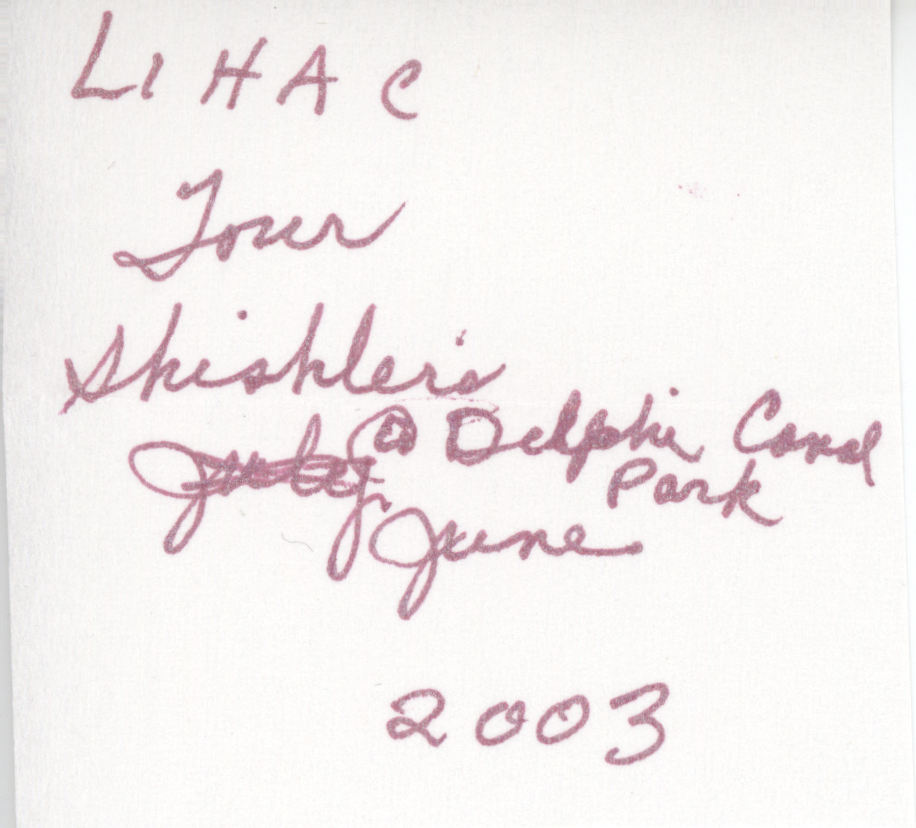 LIHAC
Tour
Shishler's
@ Delphi Canal
Park
July
June
2003